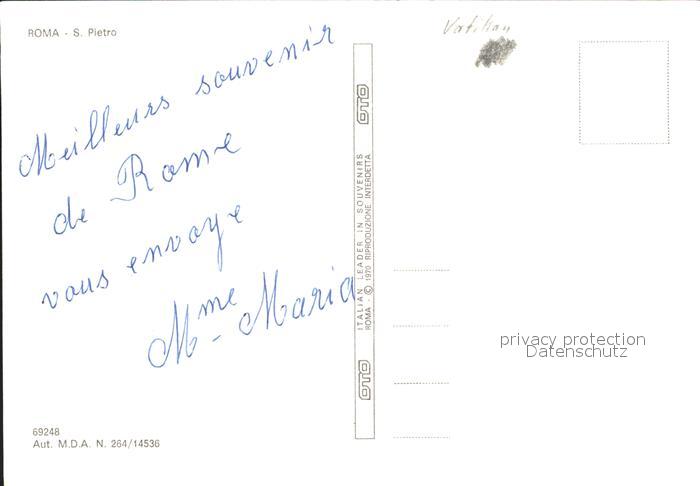 ROMA - S. Pietro
Vatikan
Meilleurs souvenir
de Rome
vous envoye
Mme - Maria
OTO
ITALIAN LEADER IN SOUVENIRS
ROMA - © 1970 RIPRODUZIONE INTERDETTA
OTO
privacy protection
Datenschutz
69248
Aut. M.D.A. N. 264/14536